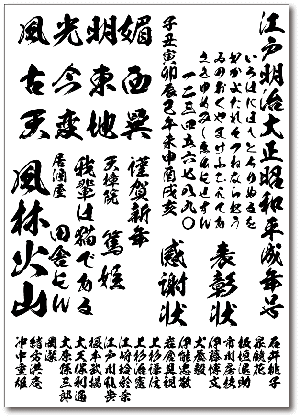 江戸明治大正昭和平成年号
いろはにほへとちりぬるを
わかよたれそつねならむう
ゐのおくやまけふこえてあ
さきゆめみしゑひもせすん
一二三四五六七八九〇
子丑寅卯辰巳午未申酉戌亥
表彰状
感謝状
媚西巽
明東地
光今変
風古天
謹賀新年
天璋院 篤姫
我輩は猫である
居酒屋 田舎もん
風林火山
石井桃子
泉鏡花
板垣退助
市川房枝
伊藤博文
犬養毅
伊能忠敬
上杉謙信
上杉治憲
江崎玲於奈
江戸川乱歩
榎本武揚
大久保利通
大原孫三郎
岡潔
緒方洪庵
沖中重雄